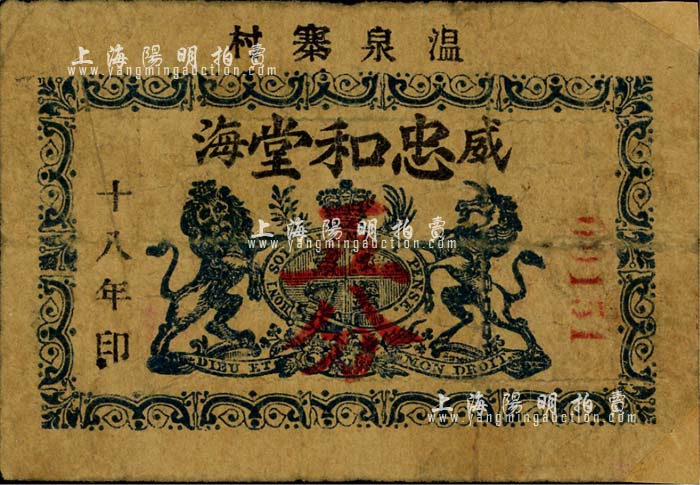 温泉寨村
威忠和堂海
十八年印
五分
HONI SOI
PENSE
DIEU ET MON DROIT
上海陽明拍賣
www.yangmingauction.com
上海陽明拍賣
www.yangmingauction.com
上海陽明拍賣
www.yangmingauction.com